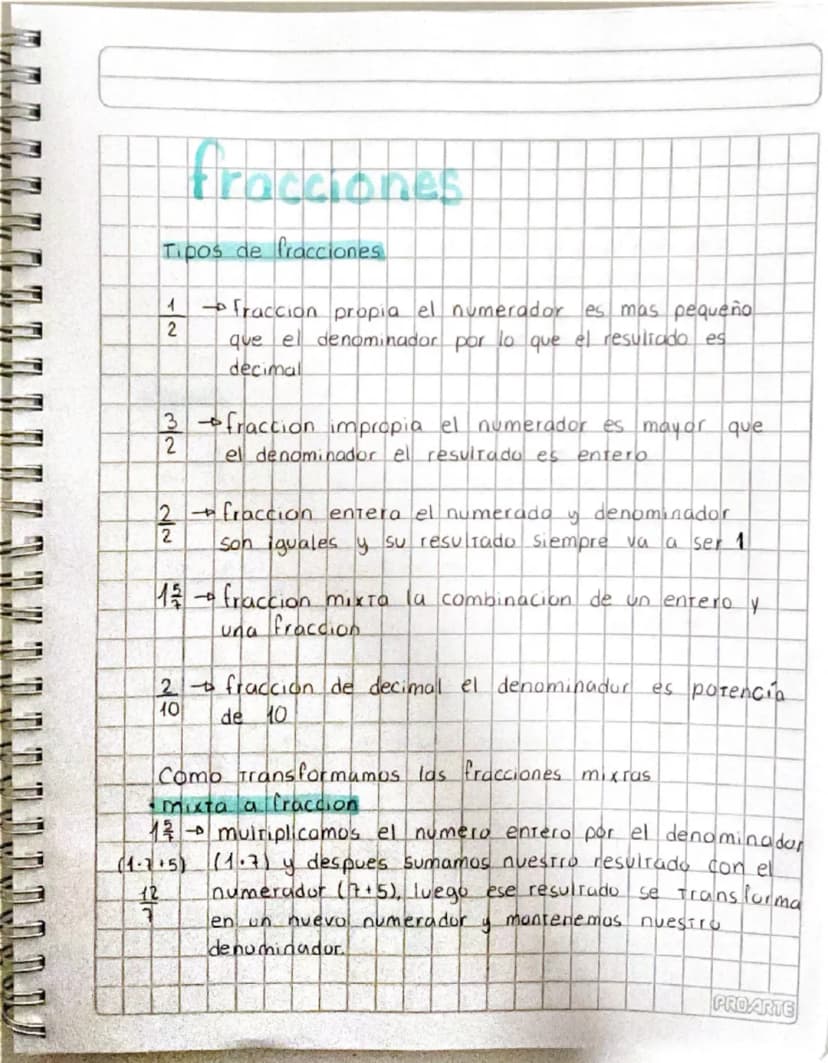 fracciones
Tipos de fracciones
1/2 → fraccion propia el numerador es mas pequeño
que el denominador por lo que el resultado es
decimal
3/2 → fraccion impropia el numerador es mayor que
el denominador el resultado es entero
2/2 → fraccion entera el numerado y denominador
son iguales y su resultado siempre va a ser 1
1 5/7 → fraccion mixta la combinacion de un entero y
una fraccion
2/10 → fraccion de decimal el denominador es potencia
de 10
Como transformamos las fracciones mixtas
• mixta a fraccion
1 5/7 → multiplicamos el numero entero por el denominador
(1·7+5) (1·7) y despues sumamos nuestro resultado con el
12/7 numerador (7+5), luego ese resultado se transforma
en un nuevo numerador y mantenemos nuestro
denominador.
PROARTE